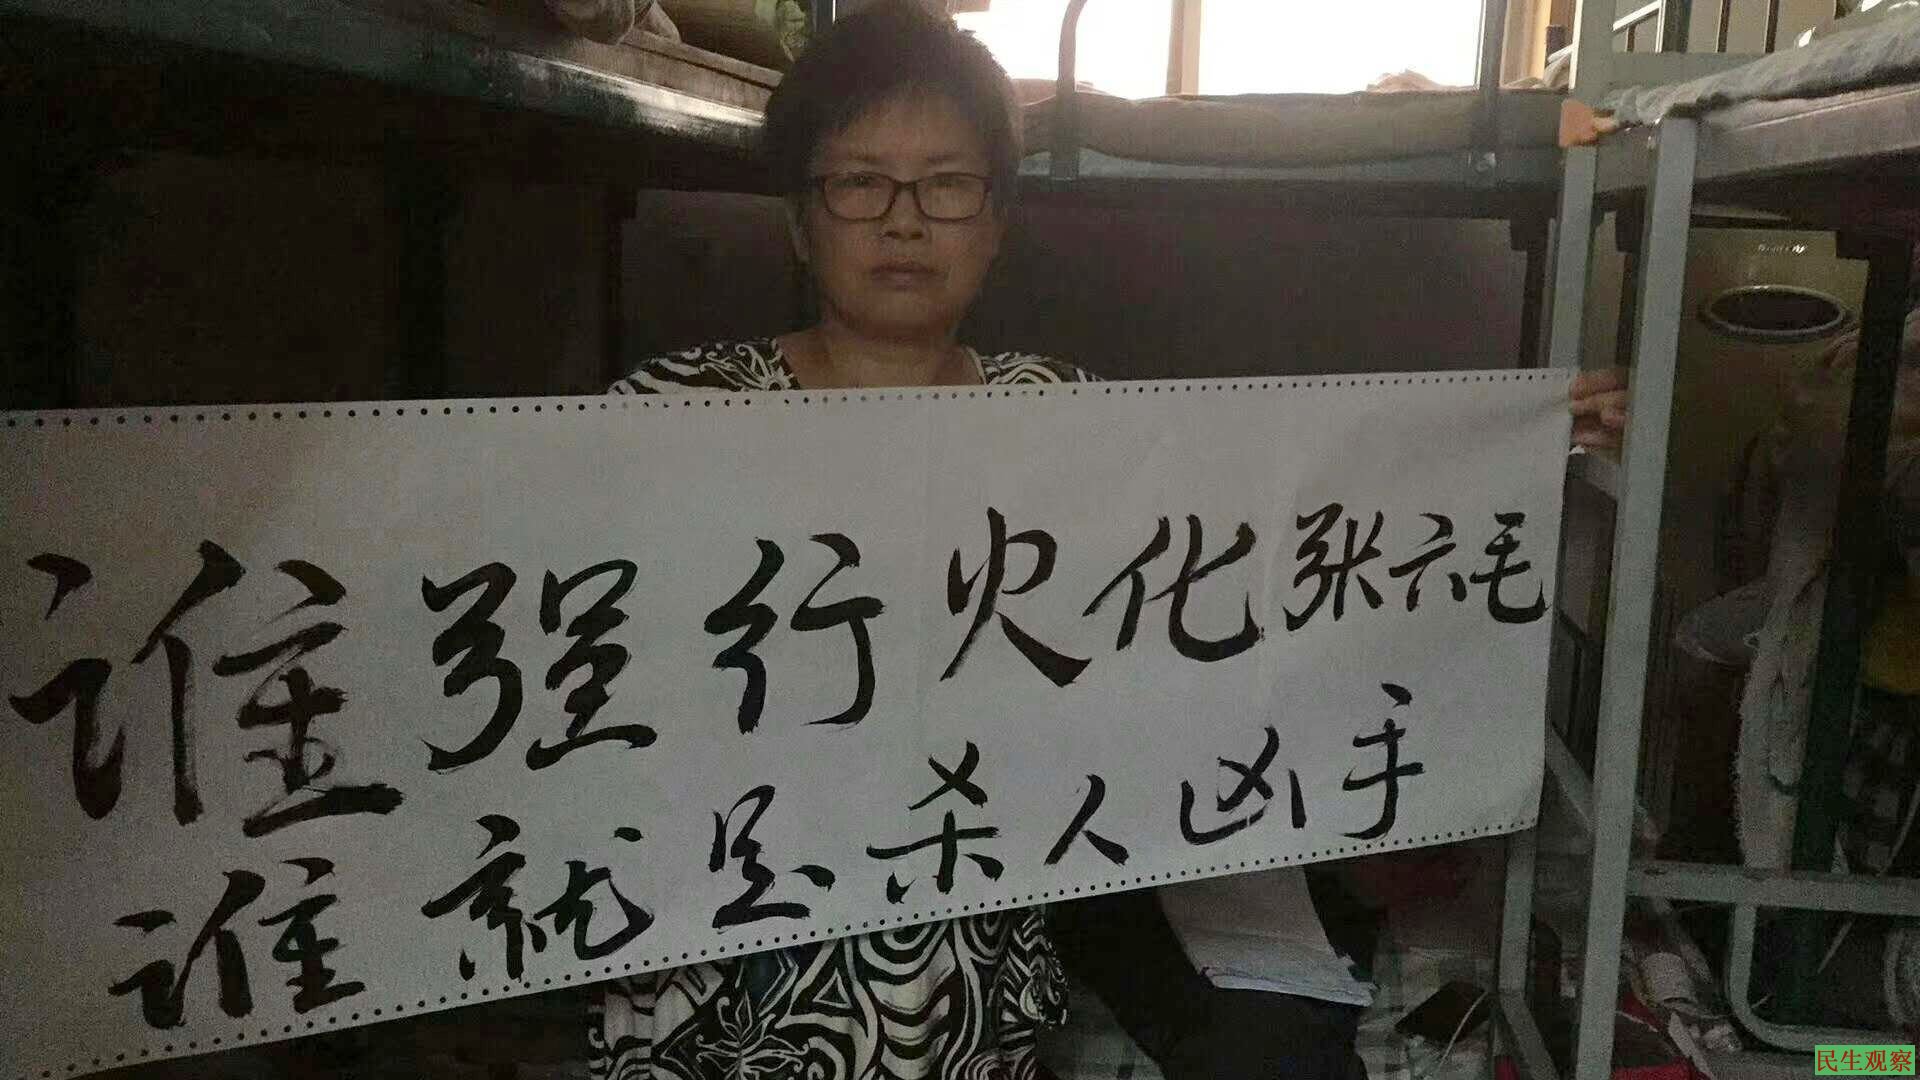 谁强行火化张六毛
谁就是杀人凶手
民生观察